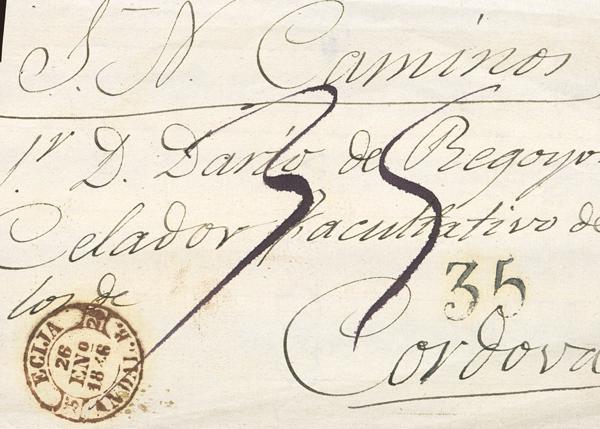 S. N. Caminos
Sr. D. Darío de Regoyos
Celador facultativo de
los de
35
35
Cordova
ECIJA
26
ENº
1846
ANDAL. B.